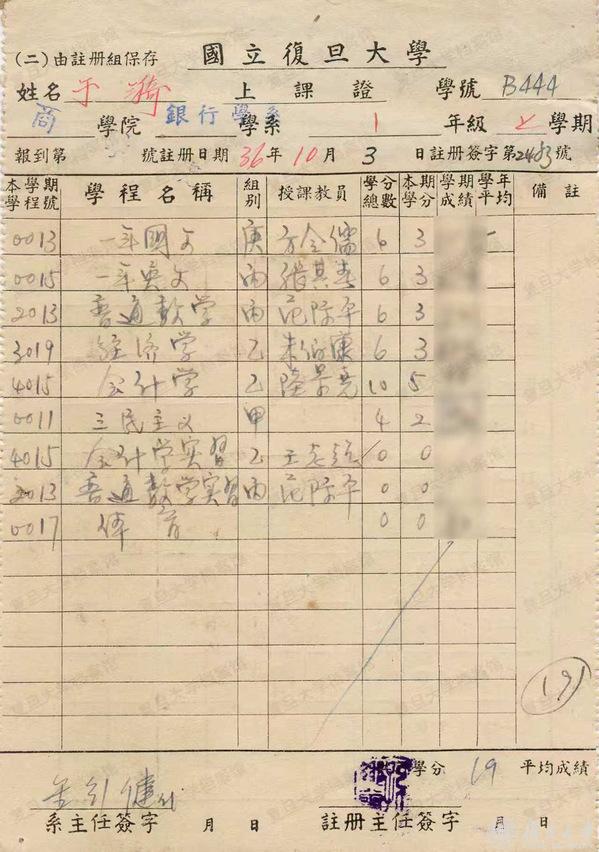 (二)由註冊組保存 國立復旦大學
姓名 于漪 上課證 學號 B444
商 學院 銀行學系 學系 1 年級 上 學期
報到第 號註冊日期 36年10月3日註冊簽字第2483號
本學期學程號 學程名稱 組別 授課教員 學分總數 本期學分 學期成績 學年平均 備註
0013 一年國文 庚 方令儒 6 3
0015 一年英文 丙 張其春 6 3
2013 普通數学 丙 范際平 6 3
3019 経济学 乙 朱伯康 6 3
4015 会计学 乙 10 5
0011 三民主义 甲 4 2
4015 会计学实習 乙 0 0
2013 普通數学实習 丙 范際平 0 0
0017 体育 0 0
19
學分 19 平均成績
系主任簽字 月 日 註冊主任簽字 月 日
復旦大学档案馆